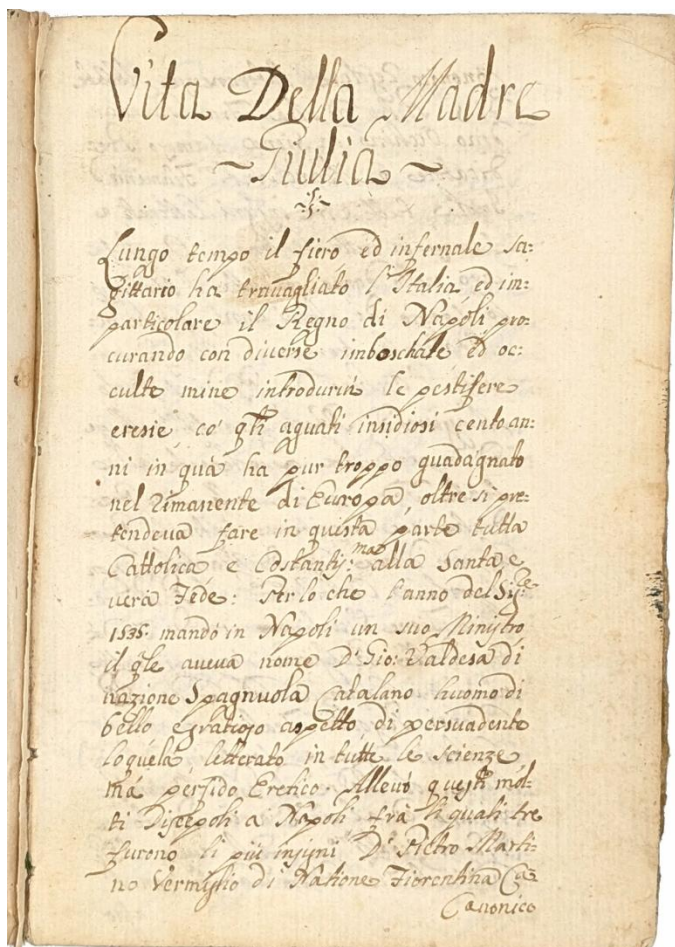 Vita Della Madre
~ Giulia ~
Lungo tempo il fiero, ed infernale sa:
gittario ha travagliato l'Italia, ed im:
particolare il Regno di Napoli pro:
curando con diverse imboschate ed oc:
culte mine introdurvi le pestifere
eresie, co' gli aguati insidiosi cento an:
ni in quà ha pur troppo guadagnato
nel rimanente di Europa, oltre si pre:
tendeva fare in questa parte tutta
Cattolica e Costantis:ma alla Santa e
vera Fede: Per lo che l'anno del Sig:re
1535. mandò in Napoli un suo Ministro
il qle aveva nome D. Gio: Valdesa di
nazione Spagnuola Catalano huomo di
bello e gratioso aspetto, di persuadente
loquela, letterato in tutte le scienze,
mà perfido Eretico. Allevò questi mol:
ti Discepoli a Napoli frà li quali tre
furono li più insigni D. Pietro Marti:
no Vermiglio di Natione Fiorentina Ca:
Canonico